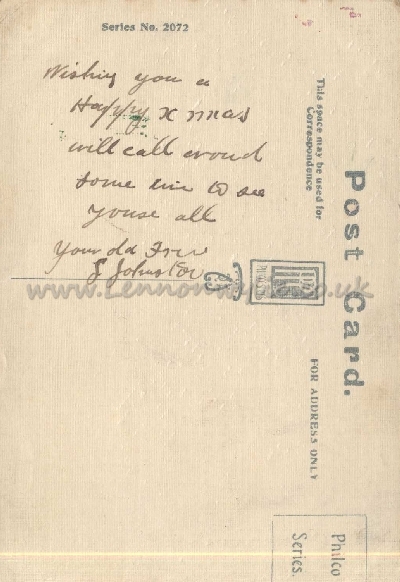 Series No. 2072
Wishing you a
Happy x mas
will call around
some time to see
youse all
Your old
Johnston
This space may be used for
Correspondence
Post Card.
FOR ADDRESS ONLY
Philco
Series